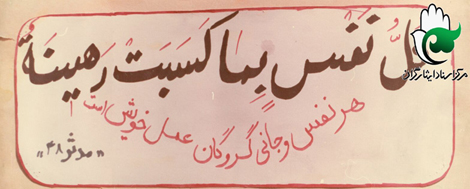 كُلُّ نَفْسٍ بِمَا كَسَبَتْ رَهِينَةٌ
هر نفس و جانی گروگان عمل خویش است
«مدثر ۳۸»
مرکز اسناد ایثارگران